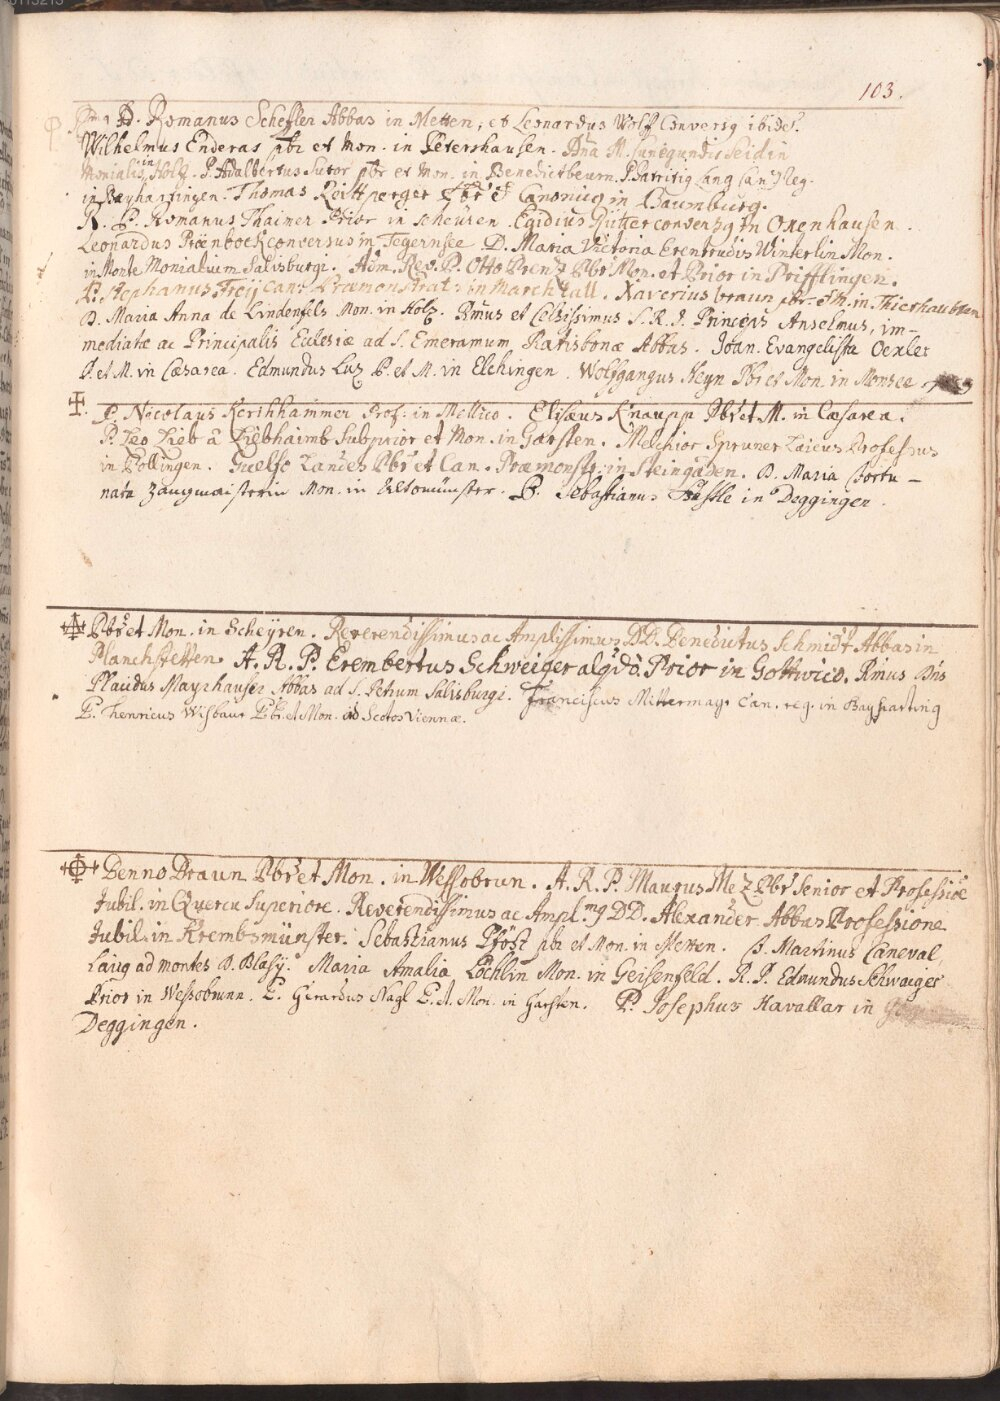 103.
D. Romanus Schefler Abbas in Metten, et Leonardus Wolf Convers9 ibidē.
Wilhelmus Enderas pbr et Mon. in Petershausen. Dna M. Cunegundis Seid in
Monialis in Holz. P. Adalbertus Sutor pbr et Mon. in Benedictbeurn. P. Patritig Lang Can. Reg.
in Bayhartingen. Thomas Reittperger Pbr et Canonicus in Baumburg.
R. P. Romanus Thaimer Prior in Scheuren. Egidius Rütter convers9 in Oxenhausen.
Leonardus Proenboek conversus in Tegernsee. D. Maria Victoria Erentrudis Winterlin Mon.
in Monte Monialium Salisburgi. Adm. Rev. P. Otto Prenz Pbr Mon. et Prior in Prifflingen.
P. Stephanus Freij Can. Præmonstrat: in Marchtall. Xaverius braun pbr et M. in Thierhaubten
D. Maria Anna de Lindenfels Mon. in Holz. Rmus et Celsissimus S. R. I. Princeps Anselmus, im-
mediatæ ac Principalis Ecclesiæ ad S. Emeramum Ratisbonæ Abbas. Joan. Evangelista Oexler
P. et M. in Cæsarea. Edmundus Luz P. et M. in Elchingen. Wolfgangus Heyn Pbr et Mon. in Monsee
P. Nicolaus Kerschhammer Prof: in Mellico. Elisæus Knaupp Pbr et M. in Cæsarea.
P. Leo Lieb à Liebhaimb Subprior et Mon. in Garsten. Melchior Spruner Laicus Professus
in Pollingen. Guelfo Landes Pbr et Can. Præmonstr: in Steingaden. D. Maria Fortu-
nata Zangmaisterin Mon. in Altomünster. P. Sebastianus Hässle in Deggingen.
Pbr et Mon. in Scheyren. Reverendissimus ac Amplissimus DD. Benedictus Schmidt Abbas in
Planckstetten. A. R. P. Erembertus Schweiger alqdo Prior in Gottwico. Rmus Dns
Placidus Mayrhauser Abbas ad S. Petrum Salisburgi. Franciscus Mittermayr Can. reg. in Bayharting
P. Henricus Wisbaur Pbr. et Mon. ad Scotos Viennæ.
Benno Braun Pbr et Mon. in Wessobrun. A. R. P. Maurus Mez Pbr Senior et Professioe
Jubil. in Quercu Superiore. Reverendissimus ac Ampl.mg DD. Alexander Abbas Professione
Jubil. in Krembsmünster. Sebastianus Pföst pbr et Mon. in Metten. P. Martinus Caneval,
Laicg ad montes D. Blasij. Maria Amalia Löchlin Mon. in Geisenfeld. R. P. Edmundus Schwaiger
Prior in Wessobrunn. P. Gerardus Nagl P. et. Mon. in Garsten. P. Josephus Havallar in
Deggingen.